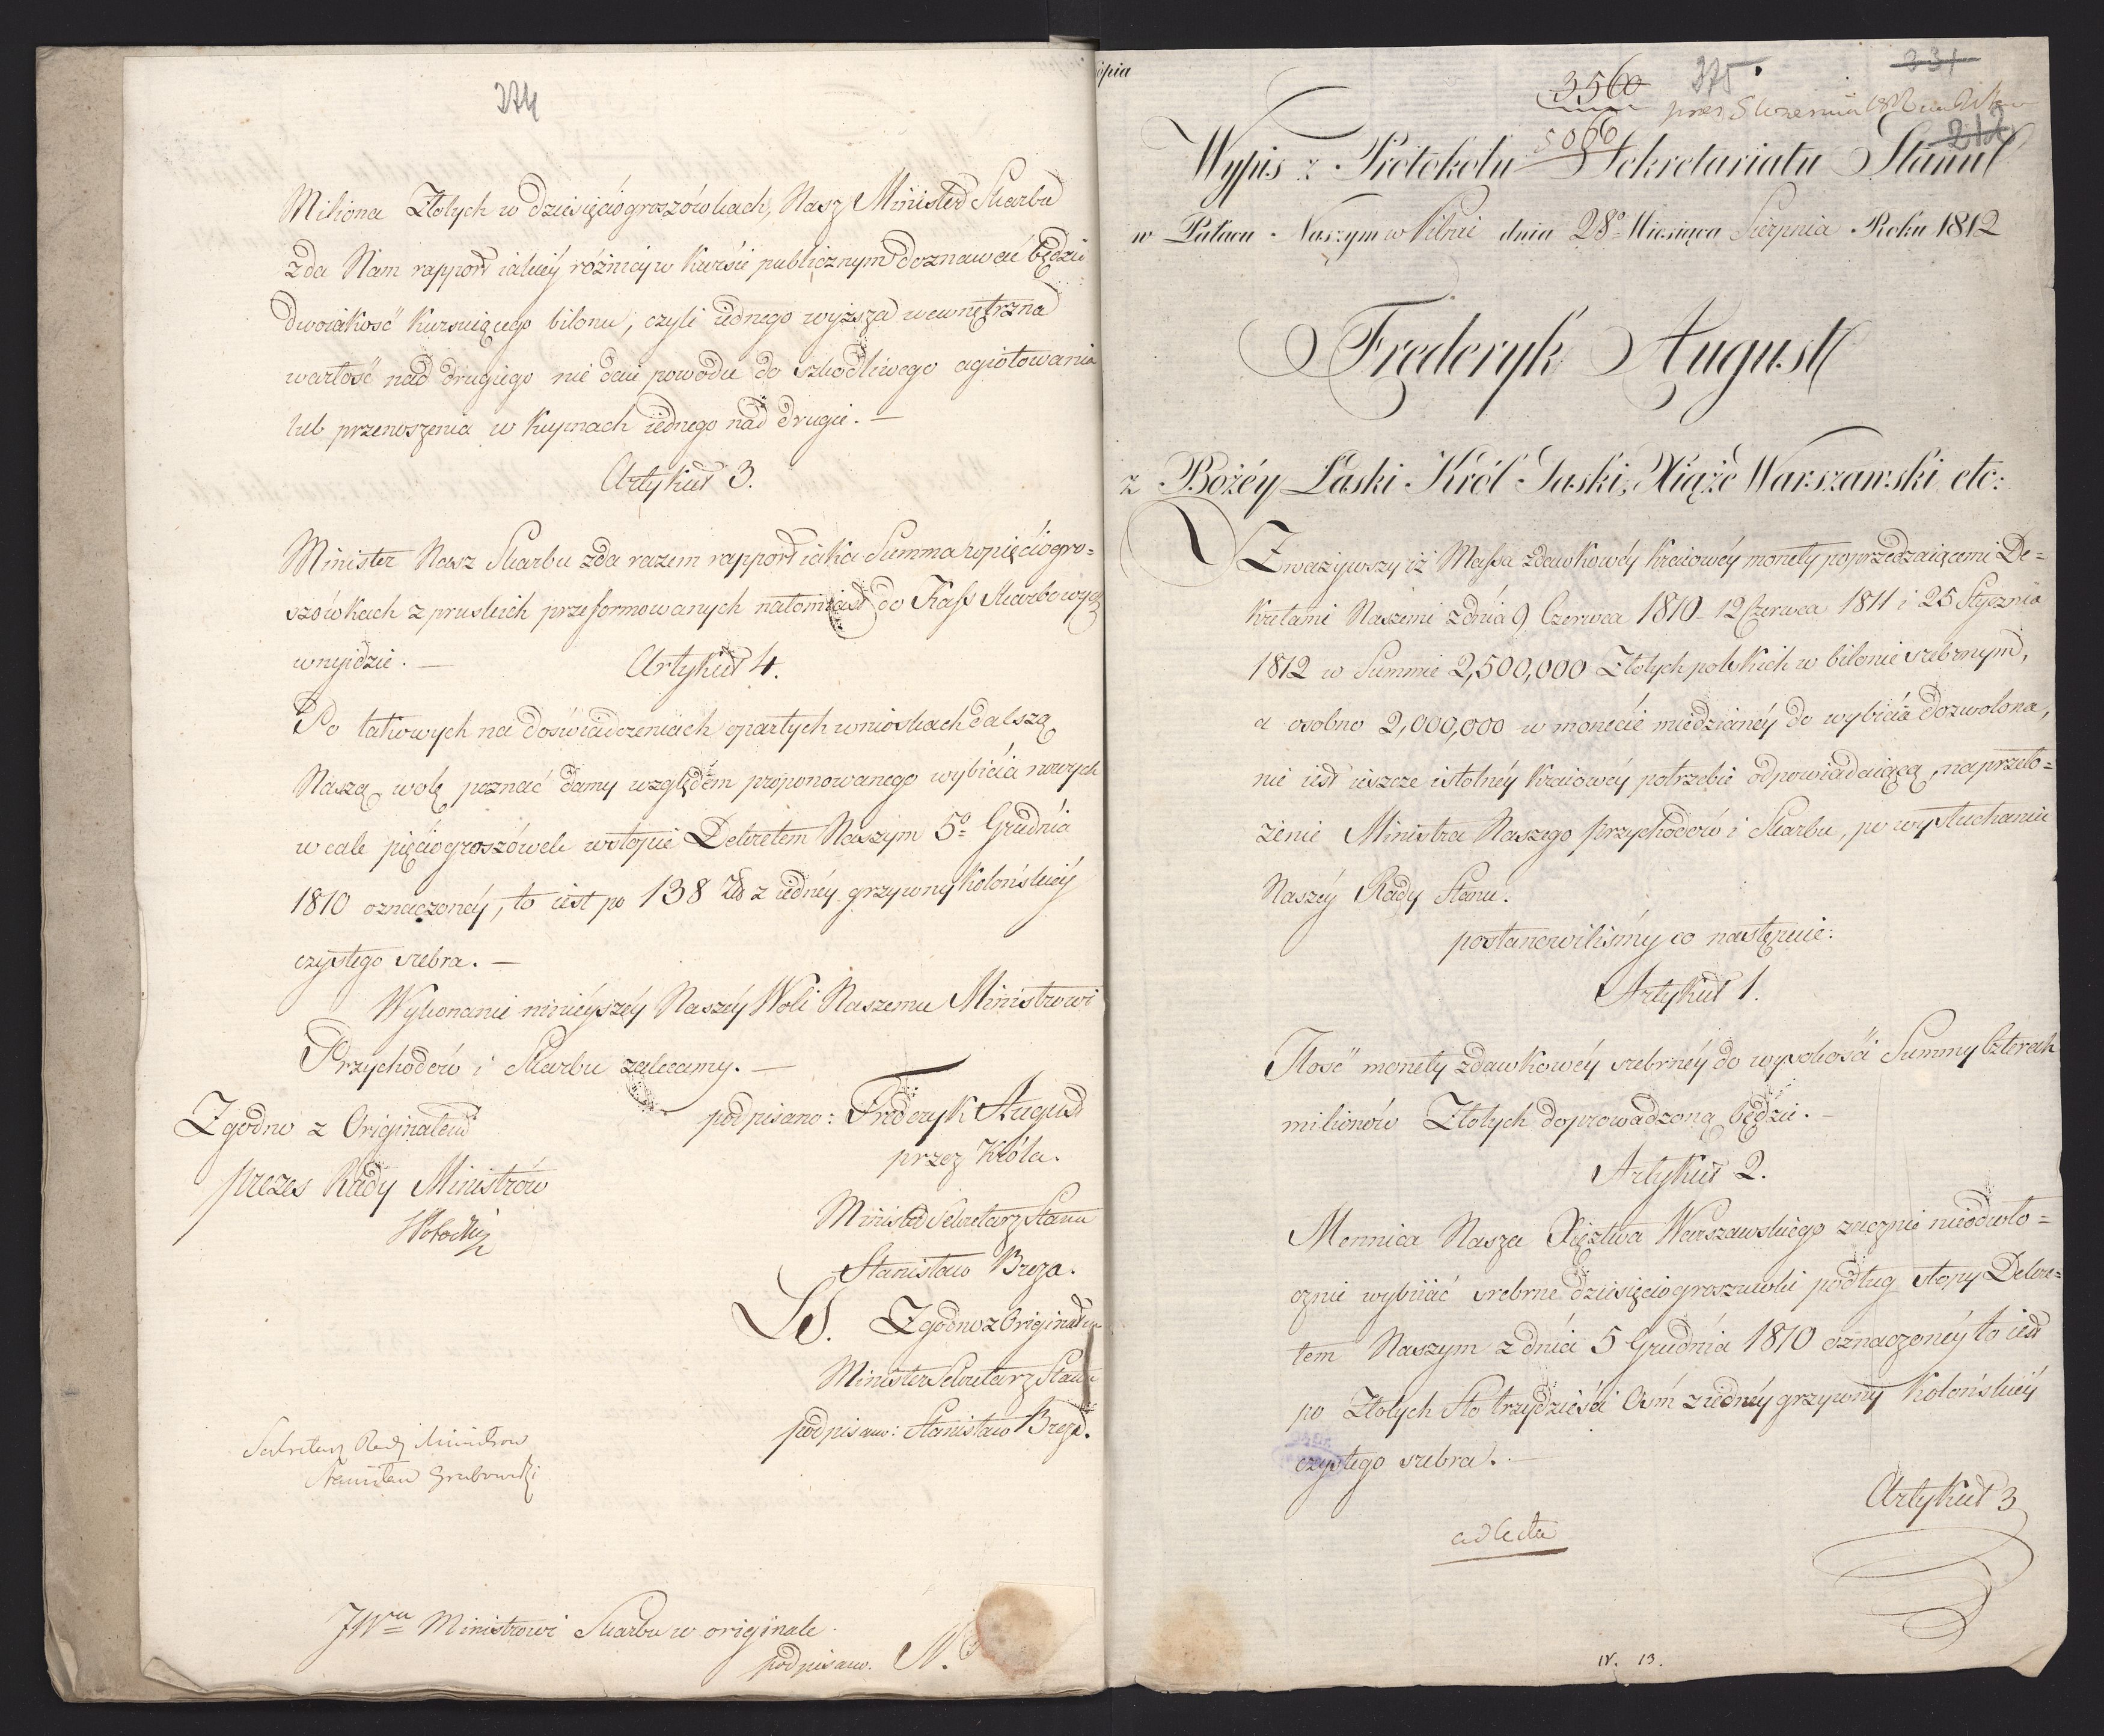 374
Miliona Złotych w dziesięciogroszówkach, Nasz Minister Skarbu
zda Nam rapport iakiéy różnicy w kursie publicznym doznawać będzie
dwoiakość kursuiącego bilonu, czyli iednego wyższa wewnętrzna
wartość nad drugiego nie daie powodu do szkodliwego agiotowania
lub przenoszenia w kupnach iednego nad drugie. —
Artykuł 3.
Minister Nasz Skarbu zda razem rapport iaka Summa w pięciogro=
szówkach z pruskich przeformowanych natomiast do Kass Skarbowych
wnyidzie. —
Artykuł 4.
Po takowych na doświadczeniach opartych wnioskach dalszą
Naszą wolę poznać damy względem proponowanego wybicia nowych
w cale pięciogroszówek w stopie Dekretem Naszym 5º Grudnia
1810 oznaczonéy, to iest po 138 Zł z iednéy grzywny Kolońskiéy
czystego srebra. —
Wykonanie ninieyszéy Naszéy Woli Naszemu Ministrowi
Przychodów i Skarbu zalecamy. —
podpisano: Frederyk August
przez Króla.
Minister Sekretarz Stanu
Stanisław Breza.
Zgodno z Originałem
Minister Sekretarz Stanu
podpisano: Stanisław Breza.
Zgodno z Originałem
prezes Rady Ministrów
Sekretarz Rady Ministrow
Stanisław Grabowski
JWu Ministrowi Skarbu w originale
podpisano.
opia
3560
375
331
5066
212
Wypis z Protokołu Sekretariatu Stanu
w Pałacu Naszym w Pilnic dnia 28º Miesiąca Sierpnia Roku 1812
Frederyk August
z Bożéy Łaski Król Saski, Xiąże Warszawski etc:
Zważywszy iż Massa zdawkowéy kraiowéy monety poprzedzaiącemi De=
kretami Naszemi z dnia 9 Czerwca 1810 - 12 Czerwca 1811 i 25 Stycznia
1812 w Summie 2,500,000 Złotych polskich w bilonie srebrnym,
a osobno 2,000,000 w monecie miedzianéy do wybicia dozwolona,
nie iest ieszcze istotnéy kraiowéy potrzebie odpowiadaiącą, na przeło=
żenie Ministra Naszego Przychodów i Skarbu, po wysłuchaniu
Naszéy Rady Stanu.
postanowiliśmy co następuie:
Artykuł 1.
Ilość monety zdawkowéy srebrnéy do wysokości Summy Czterech
milionów Złotych doprowadzoną będzie. —
Artykuł 2.
Mennica Nasza Xięztwa Warszawskiego zacznie nieodwło=
cznie wybiiać srebrne dziesięciogroszówki podług stopy Dekre=
tem Naszym z dnia 5 Grudnia 1810 oznaczonéy to iest
po Złotych Sto trzydzieści Ośm z iednéy grzywny Kolońskiéy
czystego srebra. —
Artykuł 3
ad acta
IV. 13.